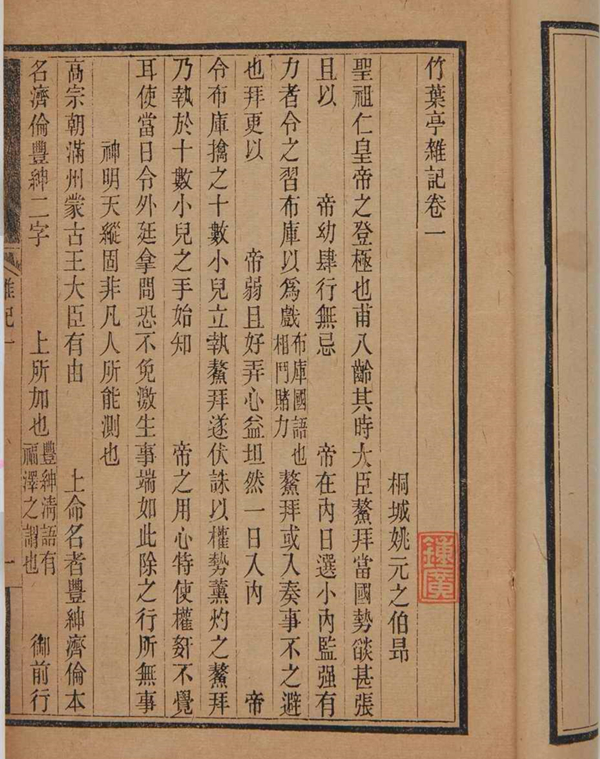 竹葉亭雜記卷一
桐城姚元之伯昻
鍾廣
聖祖仁皇帝之登極也甫八齡其時大臣鰲拜當國勢燄甚張
且以　帝幼肆行無忌　帝在內日選小內監强有
力者令之習布庫以爲戲布庫國語也相鬥賭力鰲拜或入奏事不之避
也拜更以　帝弱且好弄心益坦然一日入內　帝
令布庫擒之十數小兒立執鰲拜遂伏誅以權勢薰灼之鰲拜
乃執於十數小兒之手始知　帝之用心特使權姧不覺
耳使當日令外廷拿問恐不免激生事端如此除之行所無事
神明天縱固非凡人所能測也
高宗朝滿州蒙古王大臣有由　上命名者豐紳濟倫本
名濟倫豐紳二字　上所加也豐紳淸語有福澤之謂也　御前行
雜記一
一